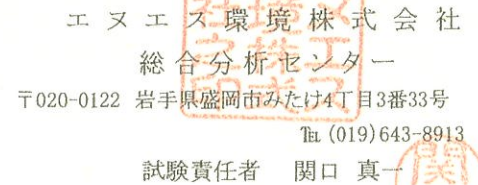 エヌエス環境株式会社
総合分析センター
〒020-0122 岩手県盛岡市みたけ4丁目3番33号
℡ (019)643-8913
試験責任者 関口 真一
関